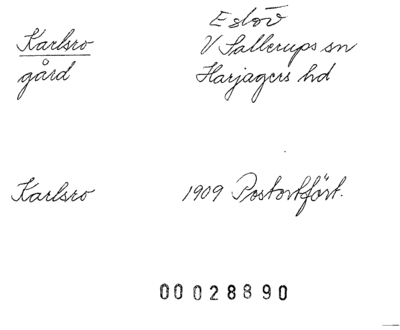 Eslöv
Karlsro V Sallerups sn
gård Harjagers hd
Karlsro 1909 Postortför.
00028890